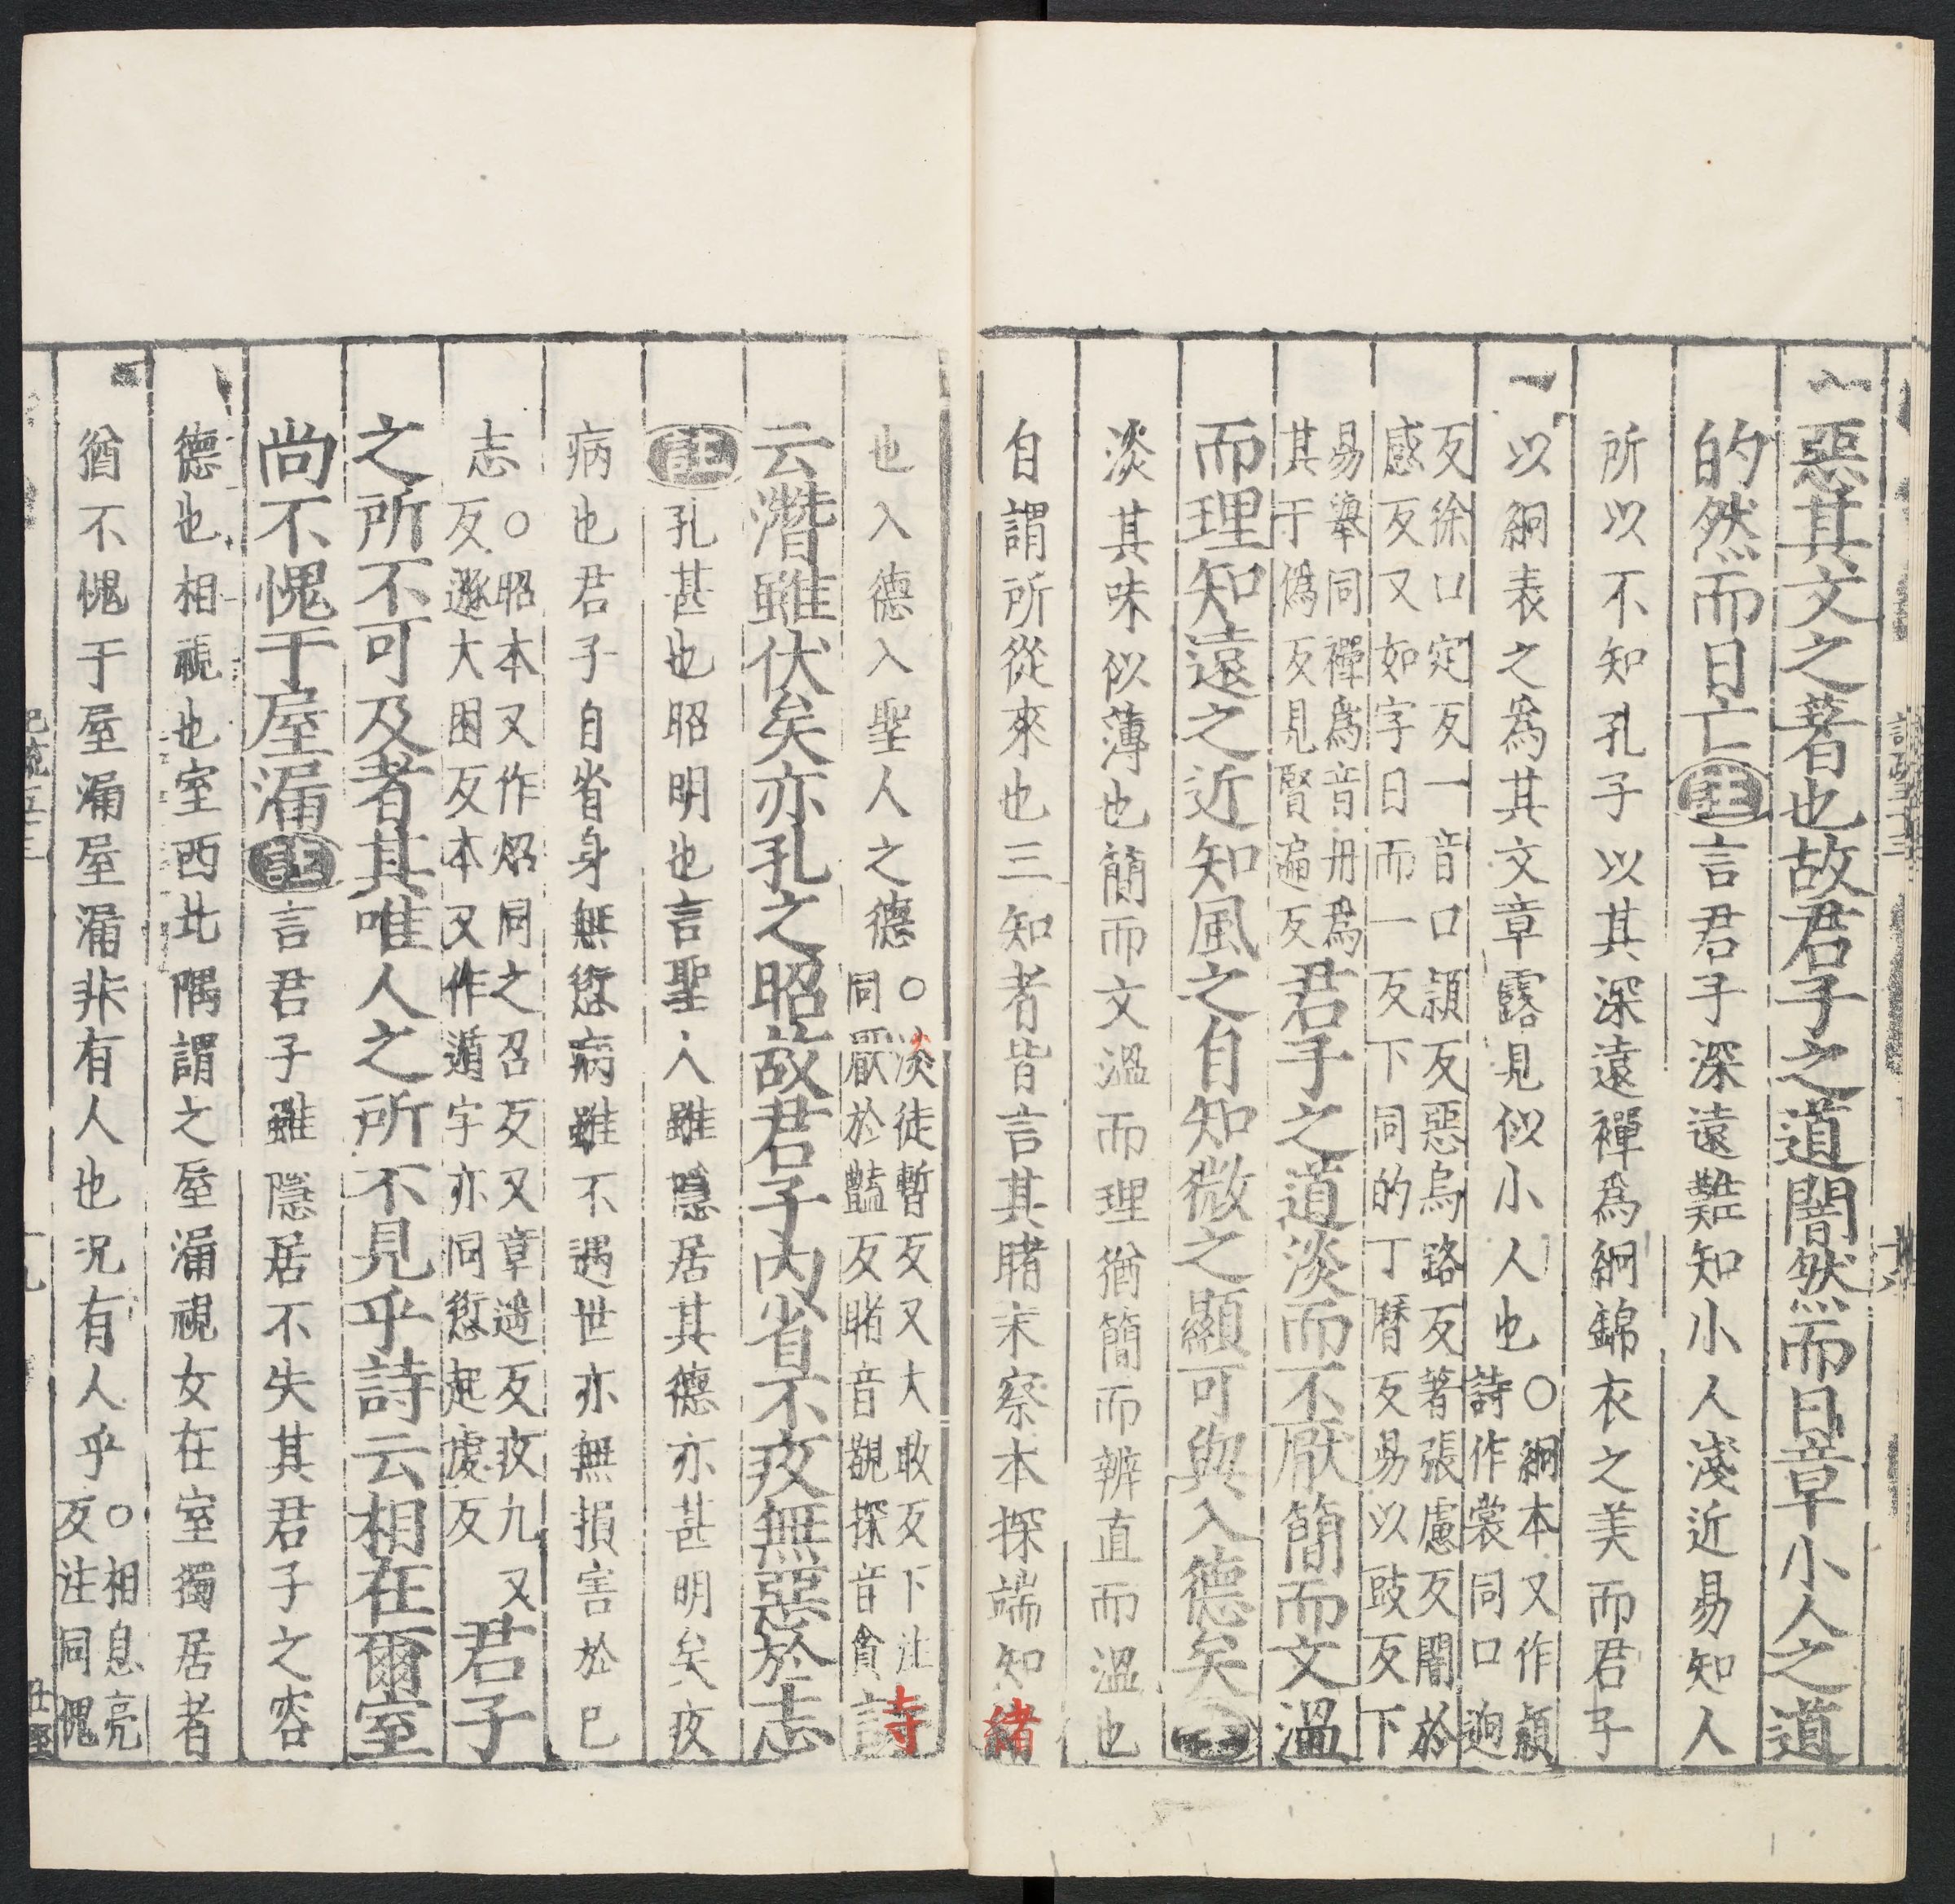 惡其文之著也故君子之道闇然而日章小人之道
的然而日亡註言君子深遠難知小人淺近易知人
所以不知孔子以其深遠禪爲絅錦衣之美而君子
以絅表之爲其文章露見似小人也○絅本又作熲
詩作裳同口迥
反徐口定反一音口穎反惡烏路反著張慮反闇於
感反又如字日而一反下同的丁曆反易以豉反下
易舉同禪爲音丹爲
其于僞反見賢遍反君子之道淡而不厭簡而文溫
而理知遠之近知風之自知微之顯可與入德矣註
淡其味似薄也簡而文溫而理猶簡而辨直而溫也
自謂所從來也三知者皆言其睹末察本探端知緒
也入德入聖人之德○淡徒暫反又大敢反下注
同厭於豔反睹音覩探音貪詩
云潛雖伏矣亦孔之昭故君子内省不疚無惡於志
註孔甚也昭明也言聖人雖隱居其德亦甚明矣疚
病也君子自省身無愆病雖不遇世亦無損害於己
志○昭本又作炤同之召反又章遥反疚九又
反遯大困反本又作遁字亦同愆起虔反君子
之所不可及者其唯人之所不見乎詩云相在爾室
尚不愧于屋漏註言君子雖隱居不失其君子之容
德也相視也室西北隅謂之屋漏視女在室獨居者
猶不愧于屋漏屋漏非有人也况有人乎○相息亮
反注同愧